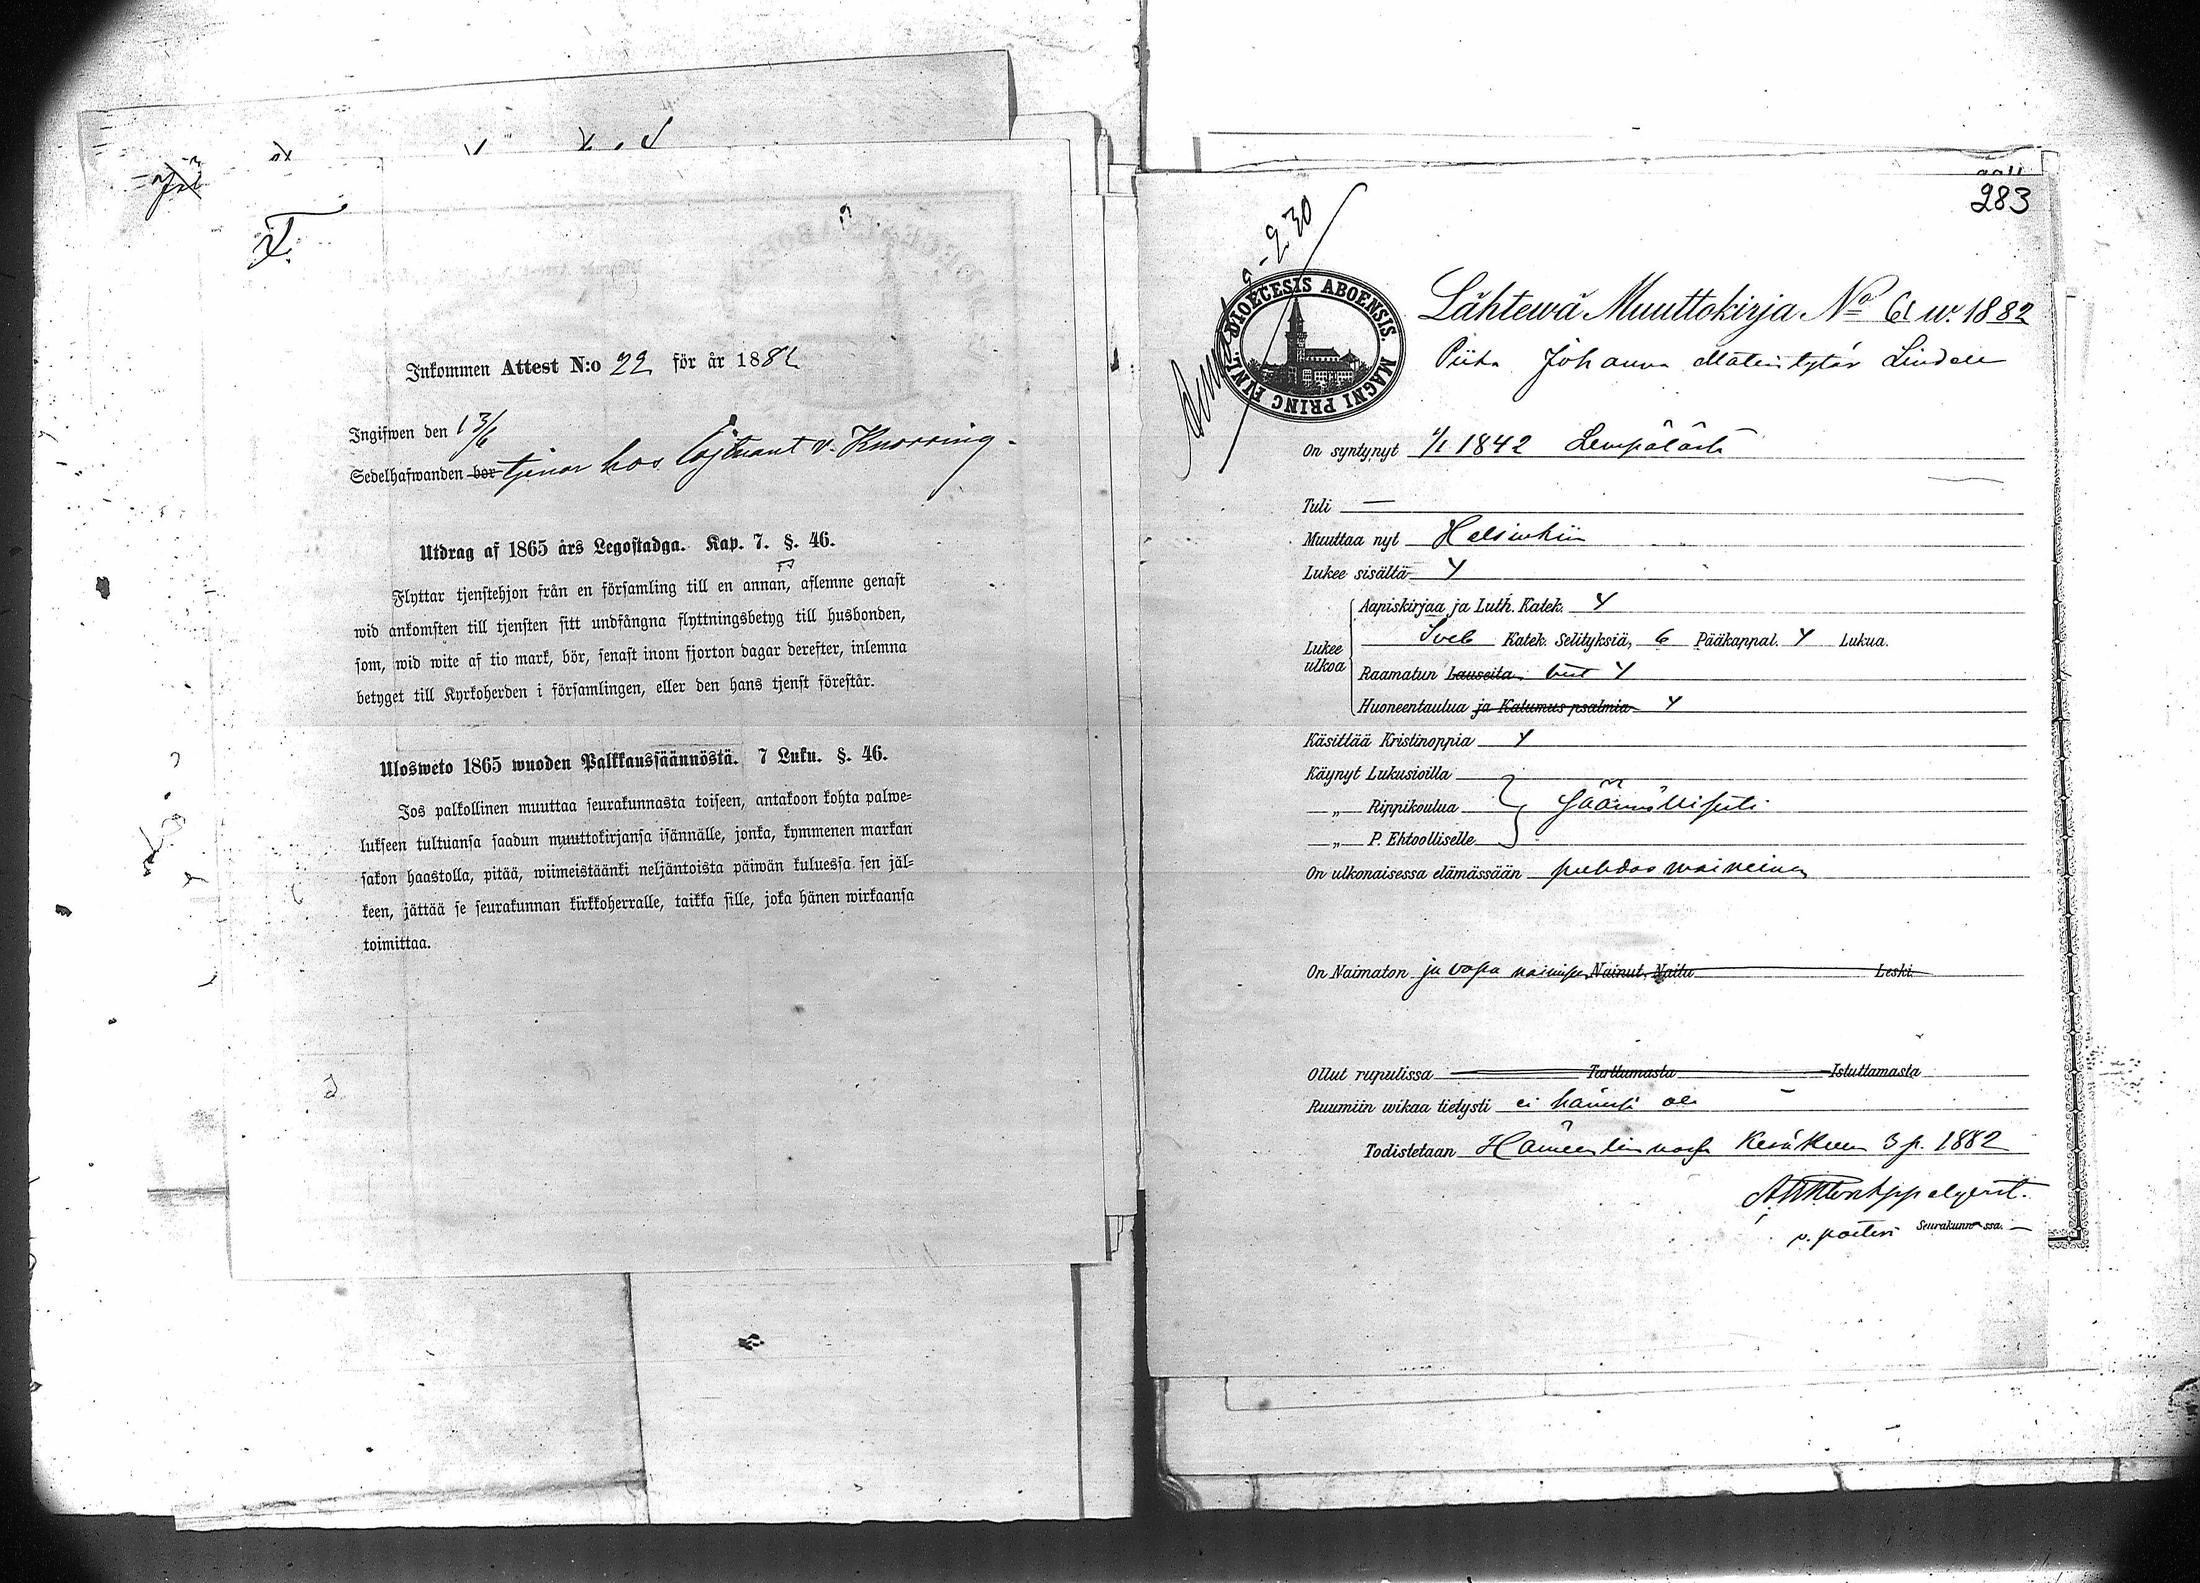 Inkommen Attest N:o 22 för år 1882
Ingifwen den 13/6
Sedelhafwanden bor tjenar hos Löjtnant v. Knorring.
Utdrag af 1865 års Legostadga. Kap. 7. §. 46.
Flyttar tjenstehjon från en församling till en annan, aflemne genast
wid ankomsten till tjensten sitt undfångna flyttningsbetyg till husbonden,
som, wid wite af tio mark, bör, senast inom fjorton dagar derefter, inlemna
betyget till Kyrkoherden i församlingen, eller den hans tjenst förestår.
Ulosweto 1865 wuoden Palkkaussäännöstä. 7 Luku. §. 46.
Jos palkollinen muuttaa seurakunnasta toiseen, antakoon kohta palwe-
lukseen tultuansa saadun muuttokirjansa isännälle, jonka, kymmenen markan
sakon haastolla, pitää, wiimeistäänki neljäntoista päiwän kuluessa sen jäl-
keen, jättää se seurakunnan kirkkoherralle, taikka sille, joka hänen wirkaansa
toimittaa.
283
DIOECESIS ABOENSIS. MAGNI PRINC FINL.
Lähtewä Muuttokirja No 61 w. 1882
Johanna Matintytär Lindell
On syntynyt 1/1 1842 Lempäälästä
Tuli —
Muuttaa nyt Helsinkiin
Lukee sisältä Y
Lukee ulkoa
Aapiskirjaa ja Luth. Katek. Y
Sveb Katek. Selityksiä, 6 Pääkappal. Y Lukua.
Raamatun Lauseita Y
Huoneentaulua ja Katumus psalmia Y
Käsittää Kristinoppia Y
Käynyt Lukusioilla
„ Rippikoulua Säännöllisesti
„ P. Ehtoolliselle
On ulkonaisessa elämässään puhdas maineinen
On Naimaton ja vapa Nainut, Naitu Leski
Ollut rupulissa Tarttumasta Istuttamasta
Ruumiin wikaa tietysti ei hänessä ole
Todistetaan Hämeenlinnassa Kesäkuun 3 p. 1882
Seurakunnassa.